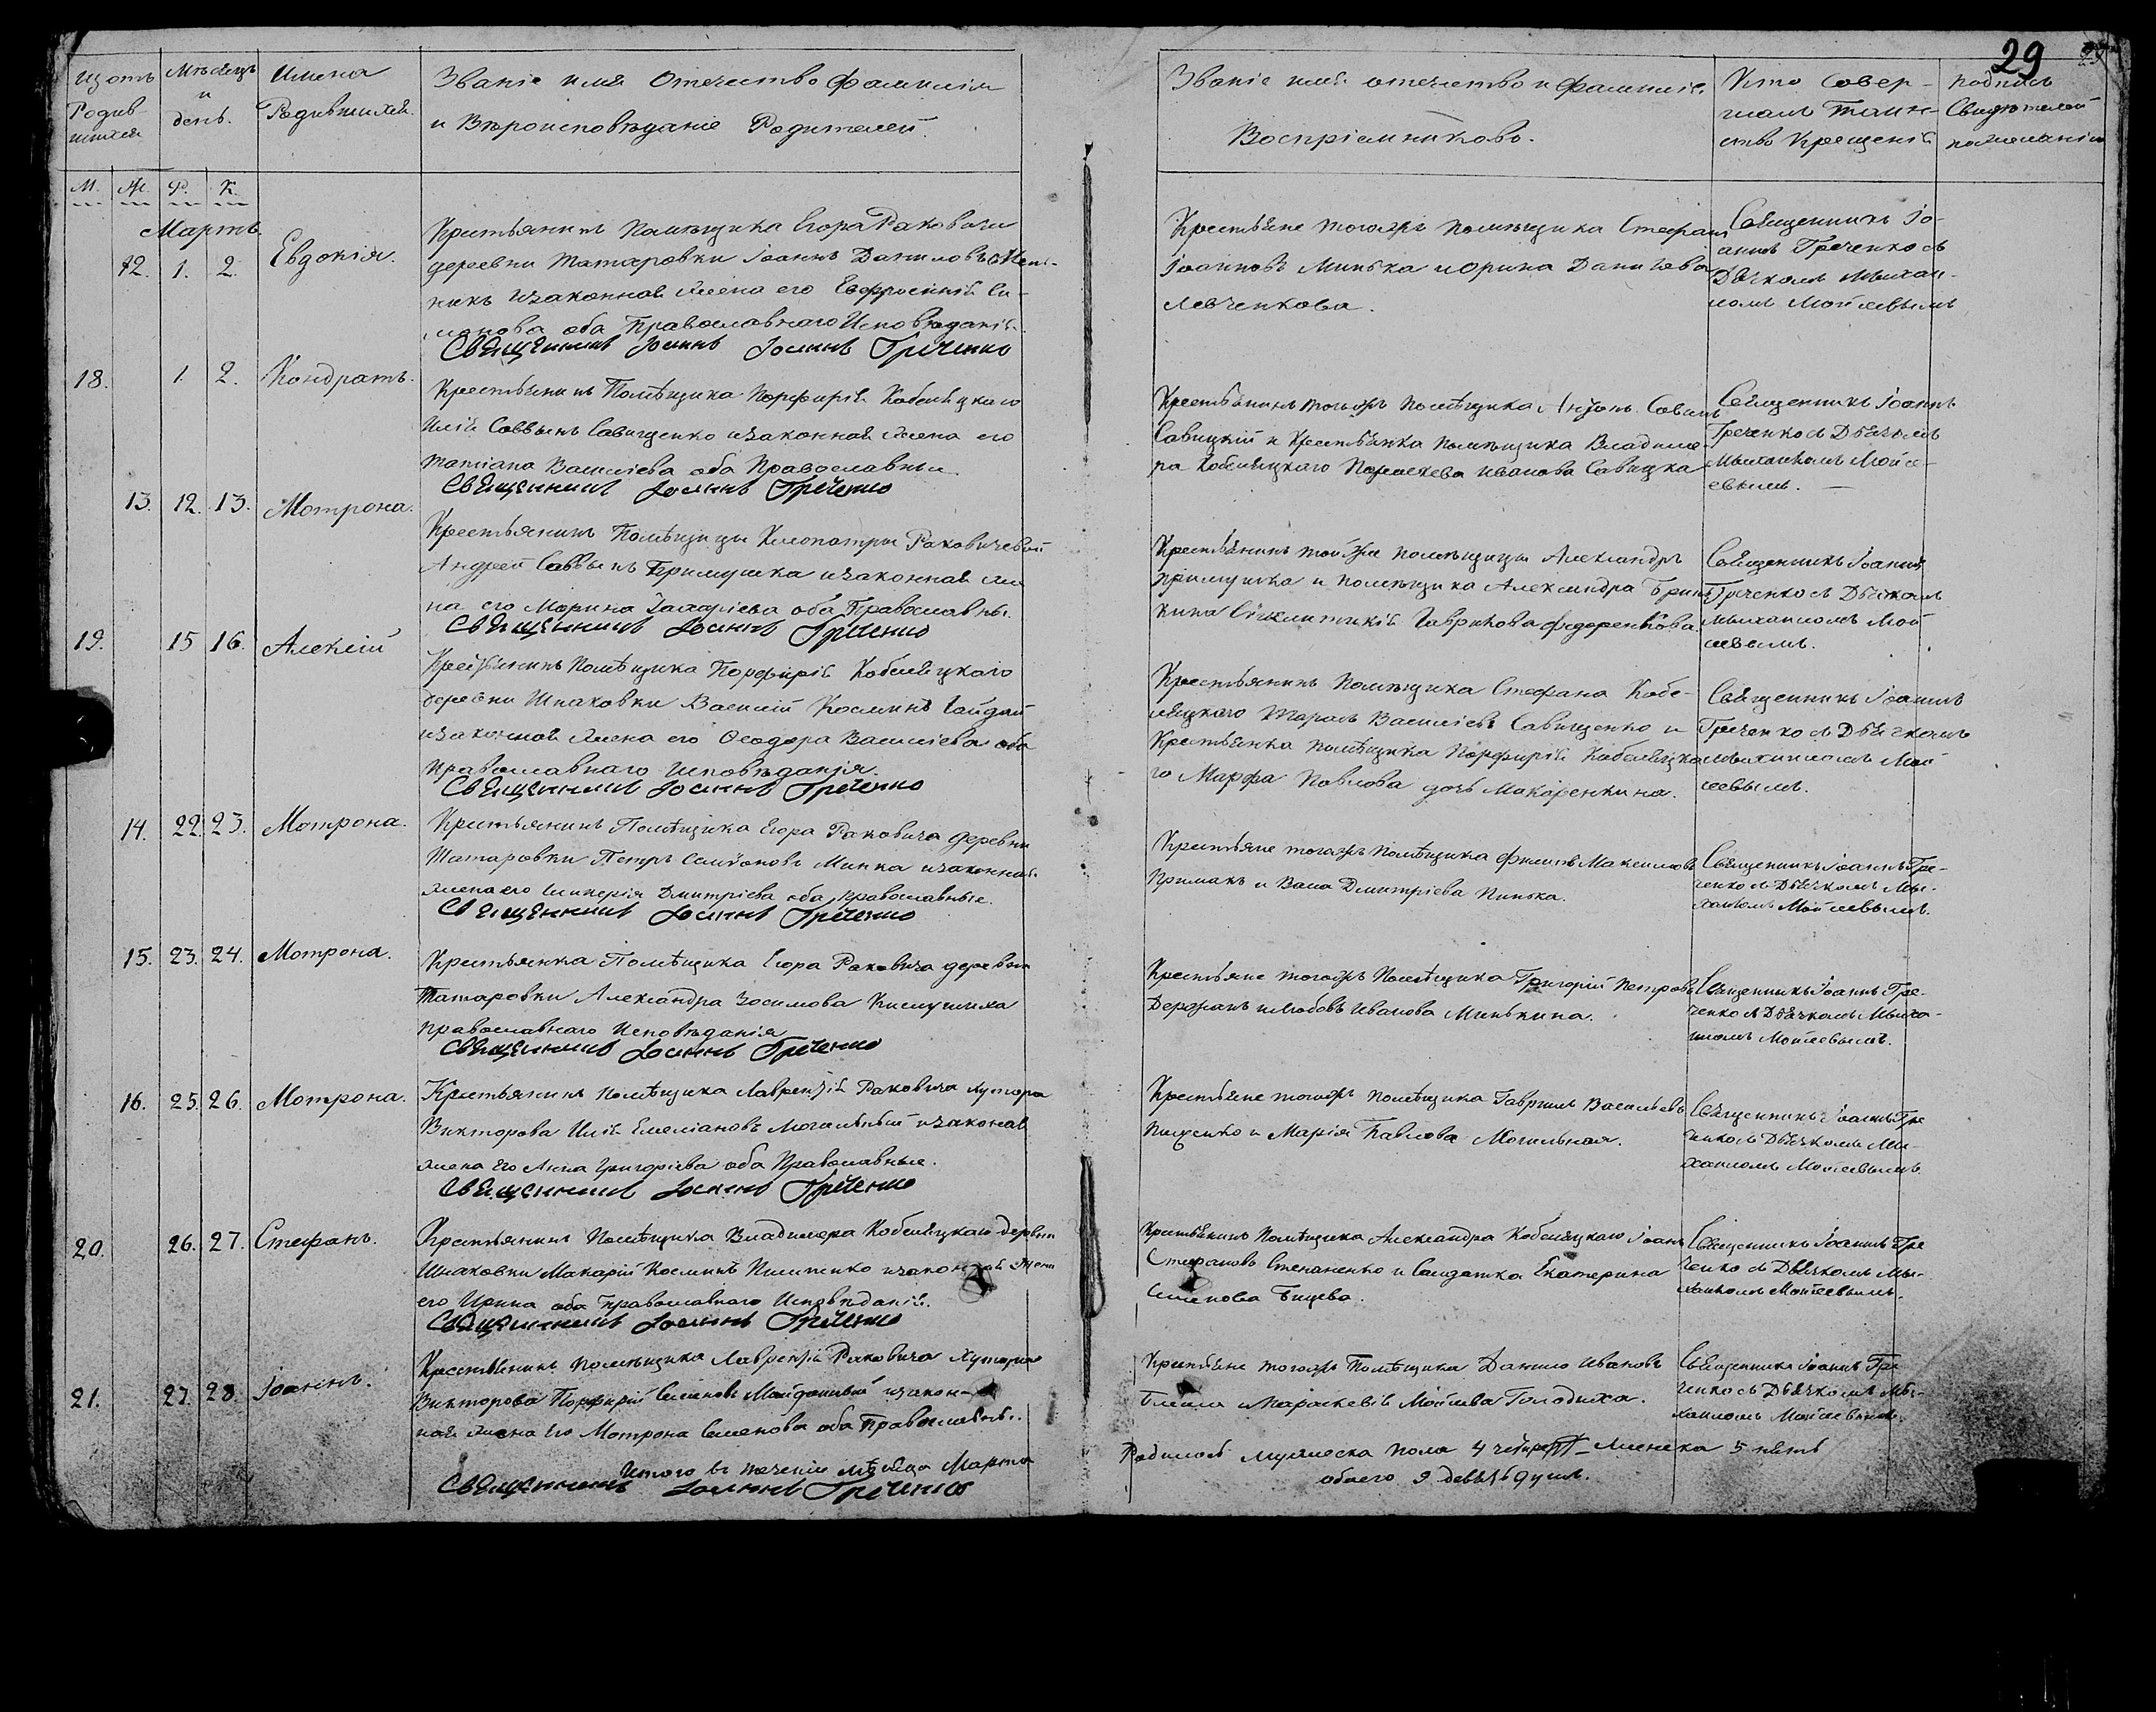 29
Щотъ Родив-шихся
Мѣсяцъ и день.
Имена Родившихся.
Званіе имя Отечество Фамилія
и Вѣроисповѣданіе Родителей.
Званіе имя отечество и фамилія
Воспріемниковъ.
Кто совер-
шалъ Таин-
ство Крещенія
подпись
Свидѣтелей
по желанію
М. Ж. Р. К.
Мартъ
12. 1. 2. Евдокія.
Крестьянинъ Помѣщика Егора Раковича
деревни Татаровки Іоаннъ Даниловъ
законная жена его Евфросинія
оба Православнаго Исповѣданія.
Священникъ Іоаннъ Іоаннъ Греченко
Крестьяне тогожъ помѣщика Стефанъ
Іоанновъ Минька и Орина Данилова
Левченкова.
Священникъ Іо-
аннъ Греченко съ
Дьячкомъ Михаи-
ломъ Мойсеевымъ
18. 1. 2. Кондратъ.
Крестьянинъ Помѣщика Порфирія Кобеляцкаго
Илія Саввинъ Савищенко и законная жена его
Татіана Василіева оба Православныи.
Священникъ Іоаннъ Греченко
Крестьянинъ тогожъ помѣщика Антонъ Савинъ
Савицкій и Крестьянка помѣщика Владиме-
ра Кобеляцкаго Иванова Савицка
Священникъ Іоаннъ
Греченко съ Дьячкомъ
Михаиломъ Мойсе-
евымъ.
13. 12. 13. Мотрона.
Крестьянинъ Помѣщицы Клеопатры Раковичевой
Андрей Саввинъ Примушка и законная же
на его Марина Захаріева оба Православны.
Священникъ Іоаннъ Греченко
Крестьянинъ тойже помѣщицы Александръ
Примушка и помѣщика Александра
Гаврикова Федоренкова.
Священникъ Іоаннъ
Греченко съ Дьячкомъ
Михаиломъ Мой
сеевымъ.
19. 15 16. Алексій
Крестьянинъ Помѣщика Порфирія Кобеляцкаго
деревни Шпаковки Василій Косминъ Гайдай
и законная жена его Феодора Василіева оба
Православнаго Исповѣданія.
Священникъ Іоаннъ Греченко
Крестьянинъ Помѣщика Стефана Кобе-
ляцкаго Тарасъ Василіевъ Савищенко и
Крестьянка Помѣщика Порфирія Кобеляцка
го Марфа Павлова дочь Макаренкина.
Священникъ Іоаннъ
Греченко съ Дьячкомъ
Михаиломъ Мой
сеевымъ.
14. 22. 23. Мотрона.
Крестьянинъ Помѣщика Егора Раковича деревни
Татаровки Петръ Симоновъ Минка и законная
жена его Гликерія Дмитріева оба православные.
Священникъ Іоаннъ Греченко
Крестьяне тогожъ Помѣщика Филипъ Максимовъ
Примакъ и Васа Дмитріева Пинька.
Священникъ Іоаннъ Гре-
ченко съ Дьячкомъ Ми-
хаиломъ Мойсеевымъ.
15. 23. 24. Мотрона.
Крестьянка Помѣщика Егора Раковича деревни
Татаровки Александра Зосимова
православнаго Исповѣданія
Священникъ Іоаннъ Греченко
Крестьяне тогожъ Помѣщика Григорій Петровъ
Держакъ и Любовъ Иванова Минькина.
Священникъ Іоаннъ Гре-
ченко съ Дьячкомъ Миха-
иломъ Мойсеевымъ.
16. 25. 26. Мотрона.
Крестьянинъ помѣщика Лаврентія Раковича хутора
Викторова Илія Емеліановъ Могильный и законая
жена его Анна Григоріева оба Православные.
Священникъ Іоаннъ Греченко
Крестьяне тогожъ помѣщика Гаврилъ Васильевъ
и Марія Павлова Могильная.
Священникъ Іоаннъ Гре
ченко съ Дьячкомъ Ми-
хаиломъ Мойсеевымъ.
20. 26. 27. Стефанъ.
Крестьянинъ Помѣщика Владимера Кобеляцкаго деревни
Шпаковки Макарій Косминъ Пилипенко и законная жена
его Ирина оба православнаго Исповѣданія.
Священникъ Іоаннъ Греченко
Крестьянинъ Помѣщика Александра Кобеляцкаго Іоанъ
Стефановъ Степаненко и Солдатка Екатерина
Семенова
Священникъ Іоаннъ Гре
ченко съ Дьячкомъ Ми-
хаиломъ Мойсеевымъ.
21. 27. 28. Іоаннъ.
Крестьянинъ помѣщика Лаврентія Раковича Хутора
Викторова Порфирій Семеновъ и закон-
ная жена Его Мотрона Семенова оба Православны.
Крестьяне тогожъ Помѣщика Данило Ивановъ
и Параскевія Мойсеева Голодиха.
Священникъ Іоаннъ Гре
ченко съ Дьячкомъ Ми-
хаиломъ Мойсеевымъ.
Итого въ теченіи мѣсяца Марта
Родилось мужеска пола 4 четыре Женска 5 пять
обоего 9 девять душъ.
Священникъ Іоаннъ Греченко